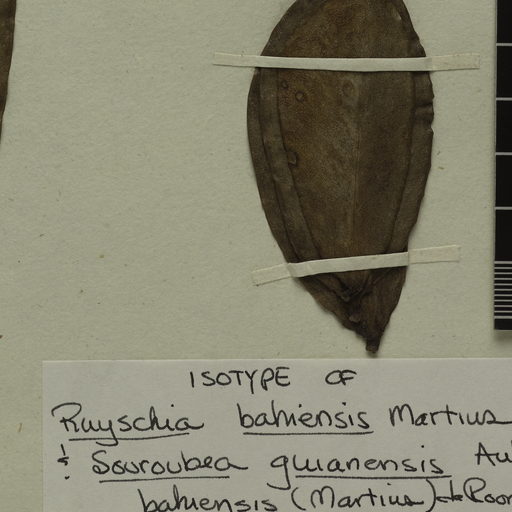 ISOTYPE OF
Ruyschia bahiensis Martius
! Souroubea guianensis Au
bahiensis (Martius) de Roon